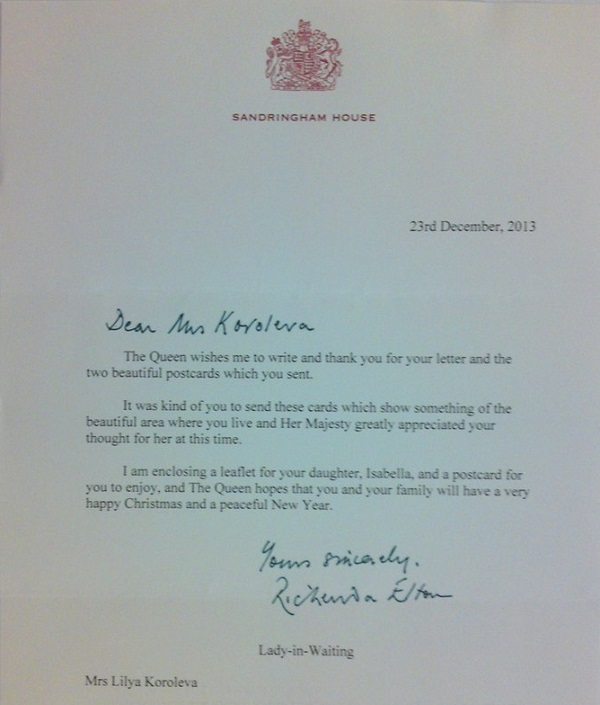 SANDRINGHAM HOUSE
23rd December, 2013
Dear Mrs Koroleva
The Queen wishes me to write and thank you for your letter and the
two beautiful postcards which you sent.
It was kind of you to send these cards which show something of the
beautiful area where you live and Her Majesty greatly appreciated your
thought for her at this time.
I am enclosing a leaflet for your daughter, Isabella, and a postcard for
you to enjoy, and The Queen hopes that you and your family will have a very
happy Christmas and a peaceful New Year.
Yours sincerely.
Richenda Elton
Lady-in-Waiting
Mrs Lilya Koroleva